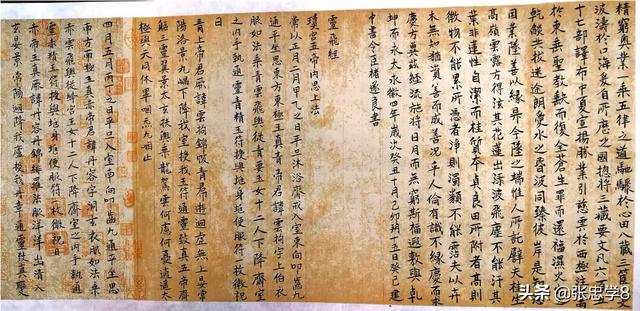 精窮奧業一乘五律之道馳驟於心田八藏三篋之文
波濤於口海爰自所歷之國揔將三藏要文凡六百五
十七部譯布中夏宣揚勝業引慈雲於西極注法雨
於東垂聖教缺而復全蒼生罪而還福濕火宅之
乾燄共拔迷途朗愛水之昏波同臻彼岸是知惡
因業墜善以緣昇昇墜之端惟人所託譬夫桂生
高嶺雲露方得泫其花蓮出淥波飛塵不能汙其
葉非蓮性自潔而桂質本貞良由所附者高則
微物不能累所憑者淨則濁類不能霑夫以卉
木無知猶資善而成善況乎人倫有識不緣慶而求
慶方冀茲經流施將日月而無窮斯福遐敷與乾
坤而永大永徽四年歲次癸丑十月己卯朔十五日癸巳建
中書令臣褚遂良書
靈飛經
瓊宮五帝內思上法
常以正月二月甲乙之日平旦沐浴齋戒入室東向叩齒九
通平坐思東方東極玉真青帝君諱雲拘字上伯衣
服如法乘青雲飛輿從青要玉女十二人下降齋室
之內手執通靈青精玉符授與兆身兆便服符一枚微祝
曰
青上帝君厥諱雲拘錦帔青帬遊迴虛無上晏常
陽洛景九嵎下降我室授我玉符通靈致真五帝齊
軀三靈翼景太玄扶輿乘龍駕雲何慮何憂遨遊太
極與天同休畢咽炁九咽止
四月五月丙丁之日平旦入室南向叩齒九通平坐思
南方南極玉真赤帝君諱丹容字洞玄衣服如法乘
赤雲飛輿從絳宮玉女十二人下降齋室之內手執通
靈赤精玉符授與兆身兆便服符一枚微祝曰
赤帝玉真厥諱丹容丹錦緋羅法服洋洋出清入
玄晏景常陽迴降我廬授我丹章通靈致真變
头条 @张忠学8